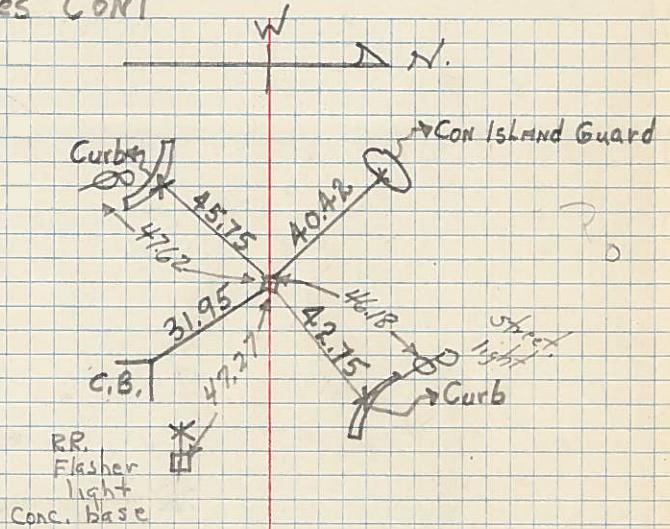 es CONT
W
N.
CON ISLAND Guard
Curb
45.75
40.42
47.62
46.18
31.95
42.75
47.27
street
light
C.B.
Curb
RR.
Flasher
light
Conc. base